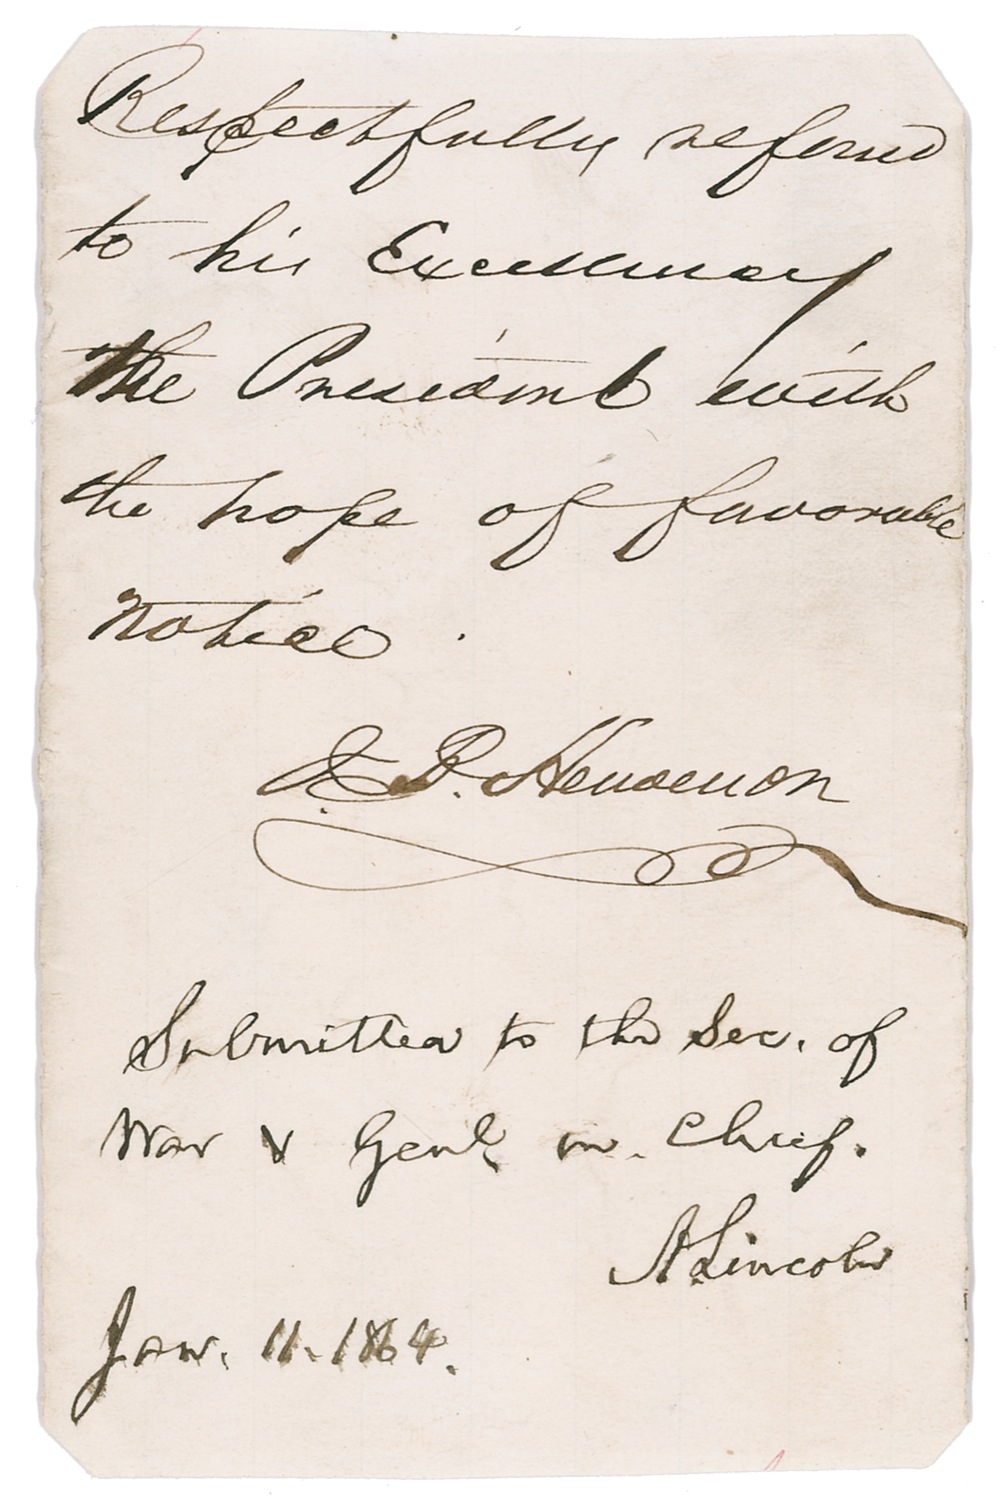 Respectfully referred
to his Excellency
the President with
the hope of favorable
notice.
J. B. Henderson
Submitted to the Sec. of
War & Genl. in. Chief.
A. Lincoln
Jan. 11. 1864.